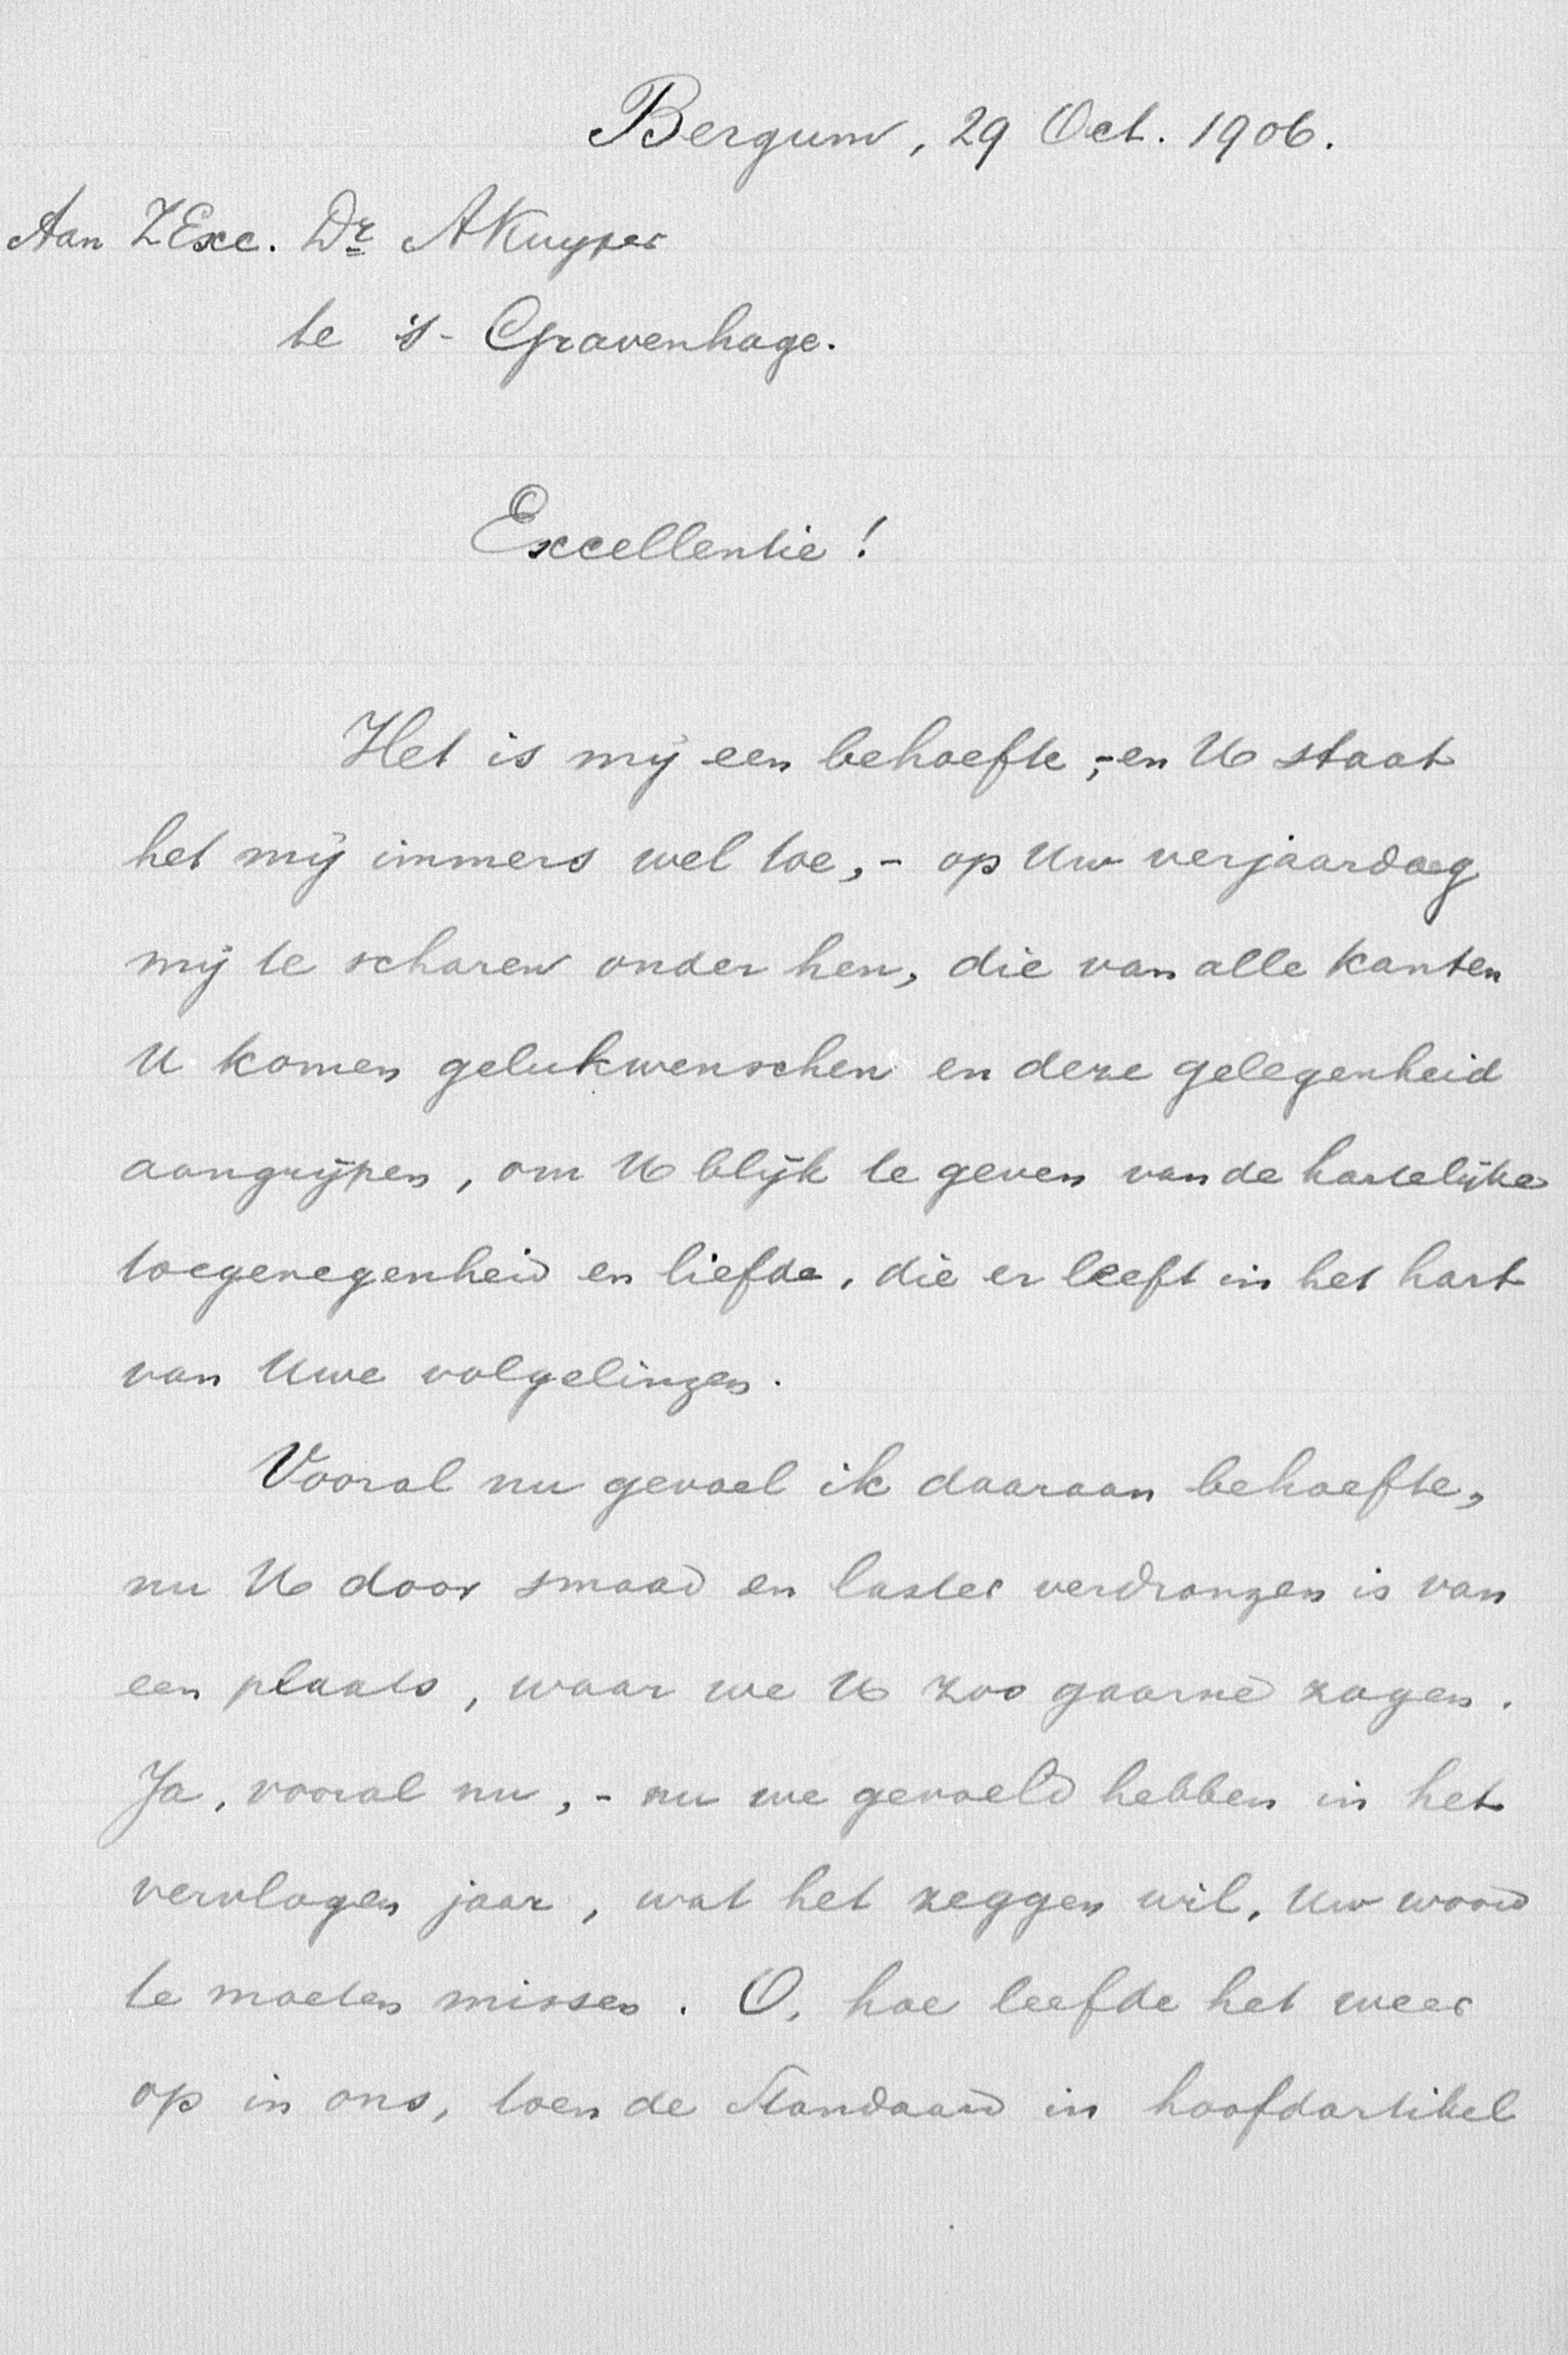 Bergum, 29 Oct. 1906.
Aan ZExc. Dr AKuyper
te 's-Gravenhage.
Excellentie!
Het is mij een behoefte,-en U staat
het mij immers wel toe,- op Uw verjaardag
mij te scharen onder hen, die van alle kanten
U komen gelukwenschen en deze gelegenheid
aangrijpen, om U blijk te geven van de hartelijke
toegenegenheid en liefde, die er leeft in het hart
van Uwe volgelingen.
Vooral nu gevoel ik daaraan behoefte,
nu U door smaad en laster verdrongen is van
een plaats, waar we U zoo gaarne zagen.
Ja, vooral nu,- nu we gevoeld hebben in het
vervlogen jaar, wat het zeggen wil, Uw woord
te moeten missen. O, hoe leefde het weer
op in ons, toen de Standaard in hoofdartikel